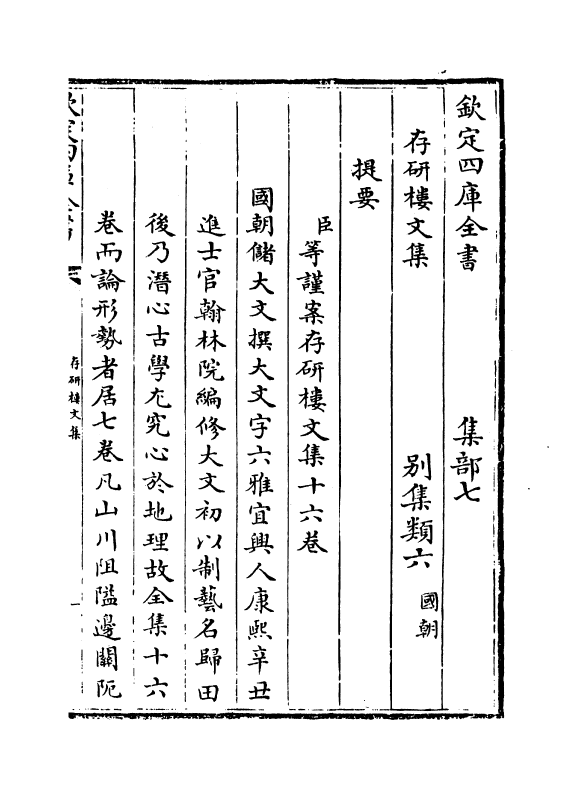 欽定四庫全書 集部七
存研樓文集 別集類六 國朝
提要
臣等謹案存研樓文集十六卷
國朝儲大文撰大文字六雅宜興人康熙辛丑
進士官翰林院編修大文初以制藝名歸田
後乃潛心古學尤究心於地理故全集十六
卷而論形勢者居七卷凡山川阻隘邊關阨
欽定四庫全書
存研樓文集
一